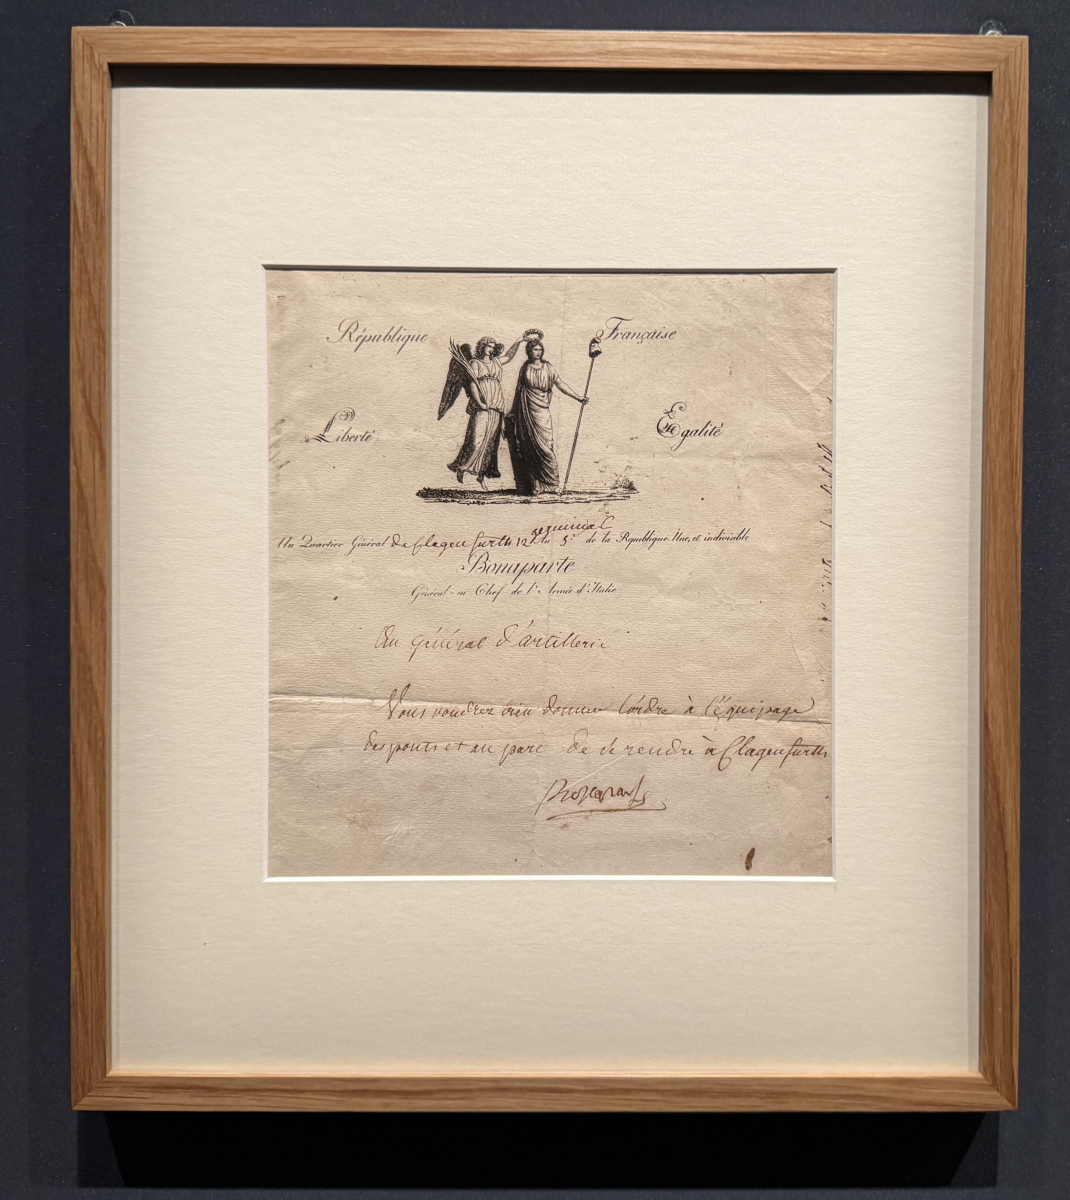 République Française
Liberté Egalité
Au Quartier Général de Clagenfurth 12 germinal 5e de la République Une, et indivisible
Bonaparte
Général-en Chef de l'Armée d'Italie
Au général d'artillerie
Vous voudrez bien donner l'ordre à l'équipage
des ponts et au parc de se rendre à Clagenfurth
Bonaparte